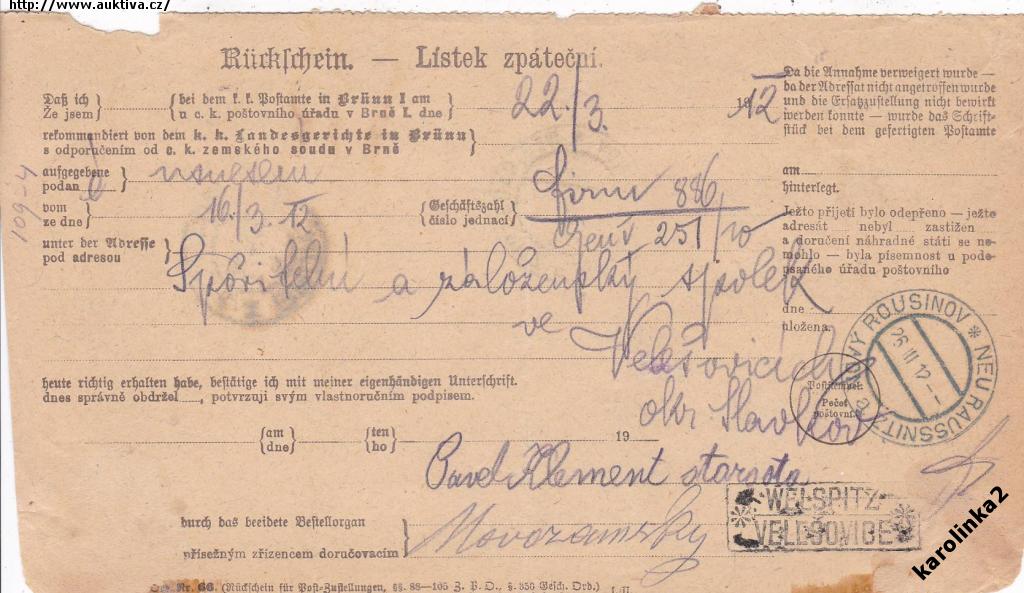 http://www.auktiva.cz/
Rückschein. — Lístek zpáteční.
Daß ich
Že jsem
bei dem k. k. Postamte in Brünn I am
u c. k. poštovního úřadu v Brně I. dne
22./3. 1912
rekommandiert von dem k. k. Landesgerichte in Brünn
s odporučením od c. k. zemského soudu v Brně
aufgegebene
podan
vom
ze dne
16/3. 12
Geschäftszahl
číslo jednací
firm 886
251/10
unter der Adresse
pod adresou
Spořitelní a záloženský spolek
ve Velešovicích
okr Slavkov
heute richtig erhalten habe, bestätige ich mit meiner eigenhändigen Unterschrift.
dnes správně obdržel, potvrzuji svým vlastnoručním podpisem.
am
dne
ten
ho
19
Pavel Klement starosta
durch das beeidete Bestellorgan
přísežným zřízencem doručovacím
Nr. 66. (Rückschein für Post-Zustellungen, §§. 88—105 Z. P. O., §. 350 Gesch. Ord.)
Da die Annahme verweigert wurde —
da der Adressat nicht angetroffen wurde
und die Ersatzzustellung nicht bewirkt
werden konnte — wurde das Schrift-
stück bei dem gefertigten Postamte
am
hinterlegt.
Ježto přijetí bylo odepřeno — ježto
adresát nebyl zastižen
a doručení náhradné státi se ne-
mohlo — byla písemnost u pode-
psaného úřadu poštovního
dne
uložena.
Poststempel
Pečeť
poštovní
NOVÝ ROUSINOV * NEU RAUSSNITZ
26 III 12
WELSPITZ
VELEŠOVICE
karolinka2
109-4